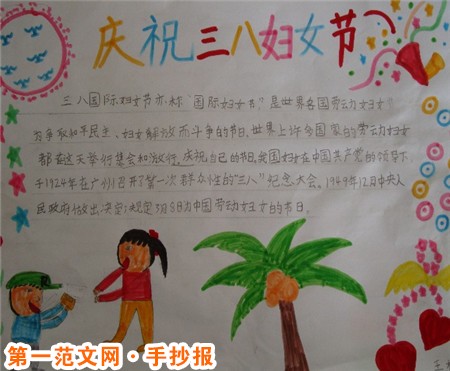 庆祝三八妇女节
三八国际妇女节亦称"国际妇女节"是世界各国劳动妇女
为争取和平民主、妇女解放而斗争的节日,世界上许多国家的劳动妇女
都在这天举行集会和游行,庆祝自己的节日,我国妇女在中国共产党的领导下,
于1924年在广州召开了第一次群众性的"三八"纪念大会。1949年12月中央人
民政府做出决定:规定3月8日为中国劳动妇女的节日。
第一范文网·手抄报